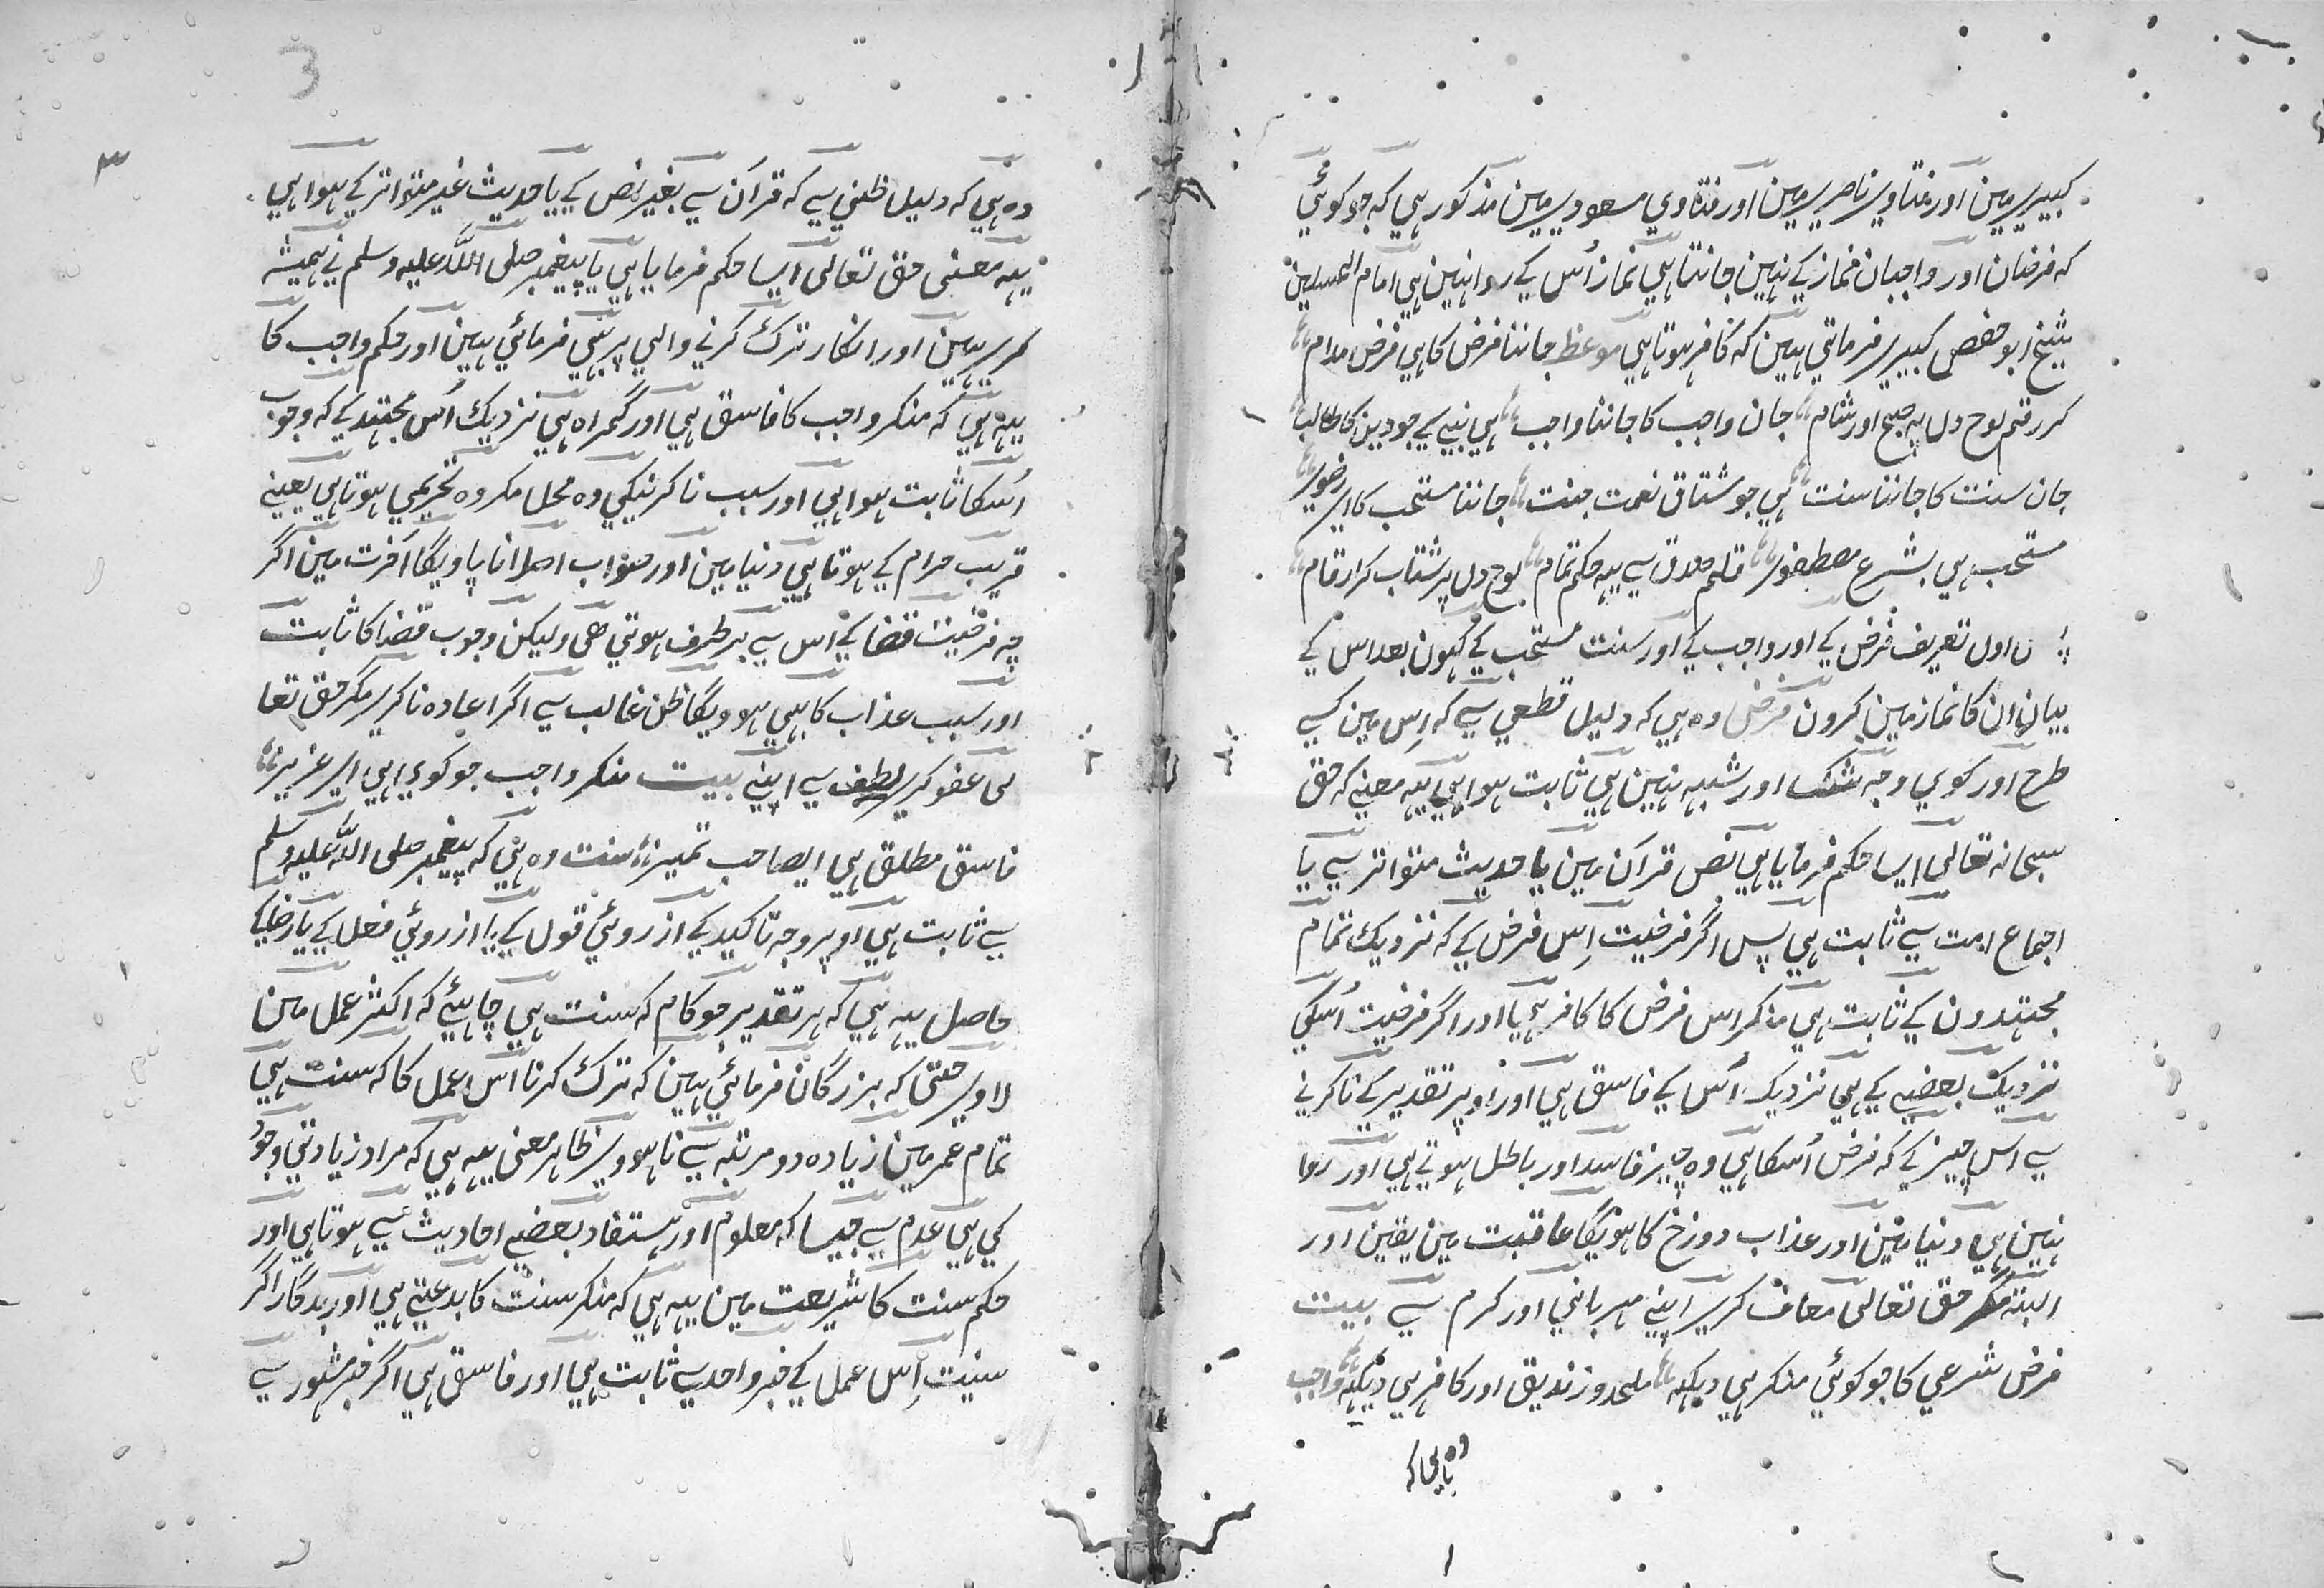 کبیری مین اور فتاوی ناصری مین اور فتاوی مسعودی مین مذکور ہی کہ جو کوئی
کہ فرضان اور واجبان نماز کے نہین جانتا ہی نماز اُس کے روا نہین ہی امام المسلمین
شیخ ابو حفص کبیری فرماتی ہین کہ کافر ہوتا ہی موعظ جاننا فرض کا ہی فرض مدام
کر رقم لوح دل پہ صبح اور شام جان واجب کا جاننا واجب ہی بنیی جو دین کا طالب
جان سنت کا جاننا سنت ہی جو مشتاق نعمت جنت جاننا مستحب کا ای
مستحب ہی بشرع مصطفوی قلم صدق سے یہہ حکم تمام لوح دل پر شتاب کر ارقام
اول تعریف فرض کے اور واجب کے اور سنت مستحب کے کہون بعد اس کے
بیان ان کا نماز مین کرون فرض وہ ہی کہ دلیل قطعی سے کہ اِس مین کسے
طرح اور کوی وجہ شک اور شبہہ نہین ہی ثابت ہوا ہی یہہ معنے کہ حق
سبحانہ تعالی ایسا حکم فرمایا ہی نص قرآن مین یا حدیث متواتر سے یا
اجماع امت سے ثابت ہی پس اگر فرضیت اِس فرض کے کہ نزدیک تمام
مجتہدون کے ثابت ہی منکر اس فرض کا کافر ہی یا اور اگر فرضیت اُسکی
نزدیک بعضے کے ہی نزدیک اُس کے فاسق ہی اور اوپر تقدیر کے ناکرنے
سے اس چیز کے کہ فرض اُسکا ہی وہ چیز فاسد اور باطل ہوتے ہی اور روا
نہین ہی دنیا مین اور عذاب دوزخ کا ہویگا عاقبت مین یقین اور
البتہ مگر حق تعالی معاف کرے اپنے مہربانی اور کرم سے بیت
فرض شرعی کا جو کوئی منکر ہی دیکہہ ملحد و زندیق اور کافر ہی دیکہہ واجب
وہ ہی کہ
3
۳
وہ ہی کہ دلیل ظنی سے کہ قرآن سے بغیر نص کے یا حدیث غیر متواتر کے ہوا ہی
یہہ معنی حق تعالی ایسا حکم فرمایا ہی یا پیغمبر صلی اللہ علیہ وسلم نے ہمیشہ
کرے ہین اور انکار ترک کرنے والی پر بہی فرمائی ہین اور حکم واجب کا
یہہ ہی کہ منکر واجب کا فاسق ہی اور گمراہ ہی نزدیک اُس مجتہد کے کہ وجوب
اُسکا ثابت ہوا ہی اور سبب ناکرنیکی وہ محل مکروہ تحریمی ہوتا ہی یعنے
قریب حرام کے ہوتا ہی دنیا مین اور صواب اصلا نا پاویگا آخرت مین اگر
چہ فرضیت قضا کے اُس سے برطرف ہوتی ھی ولیکن وجوب قضا کا ثابت
اور سبب عذاب کا بہی ہوویگا ظن غالب سے اگر اعادہ ناکرے مگر حق تعا
لی عفو کرے لطف سے اپنے بیت منکر واجب جو کوی ہی ای عزیز
فاسق مطلق ہی ایصاحب تمیز سنت وہ ہی کہ پیغمبر صلی اللہ علیہ وسلم
سے ثابت ہی اوپر وجہ تاکید کے از روئی قول کے یا از روئی فعل کے یا
حاصل یہہ ہی کہ ہر تقدیر جو کام کہ سنت ہی چاہیئے کہ اکثر عمل مین
لاوی حتی کہ بزرگان فرمائی ہین کہ ترک کرنا اس عمل کا کہ سنت ہی
تمام عمر مین زیادہ دو مرتبہ سے نا ہووی ظاہر معنی یہہ ہی کہ مراد زیادتی وجود
کی ہی عدم سے جیسا کہ معلوم اور مستفاد بعضے احادیث سے ہوتا ہی اور
حکم سنت کا شریعت مین یہہ ہی کہ منکر سنت کا بدعتے ہی اور بدکار اگر
سنیت اِس عمل کے خبر واحد سے ثابت ہی اور فاسق ہی اگر خبر مشہور سے